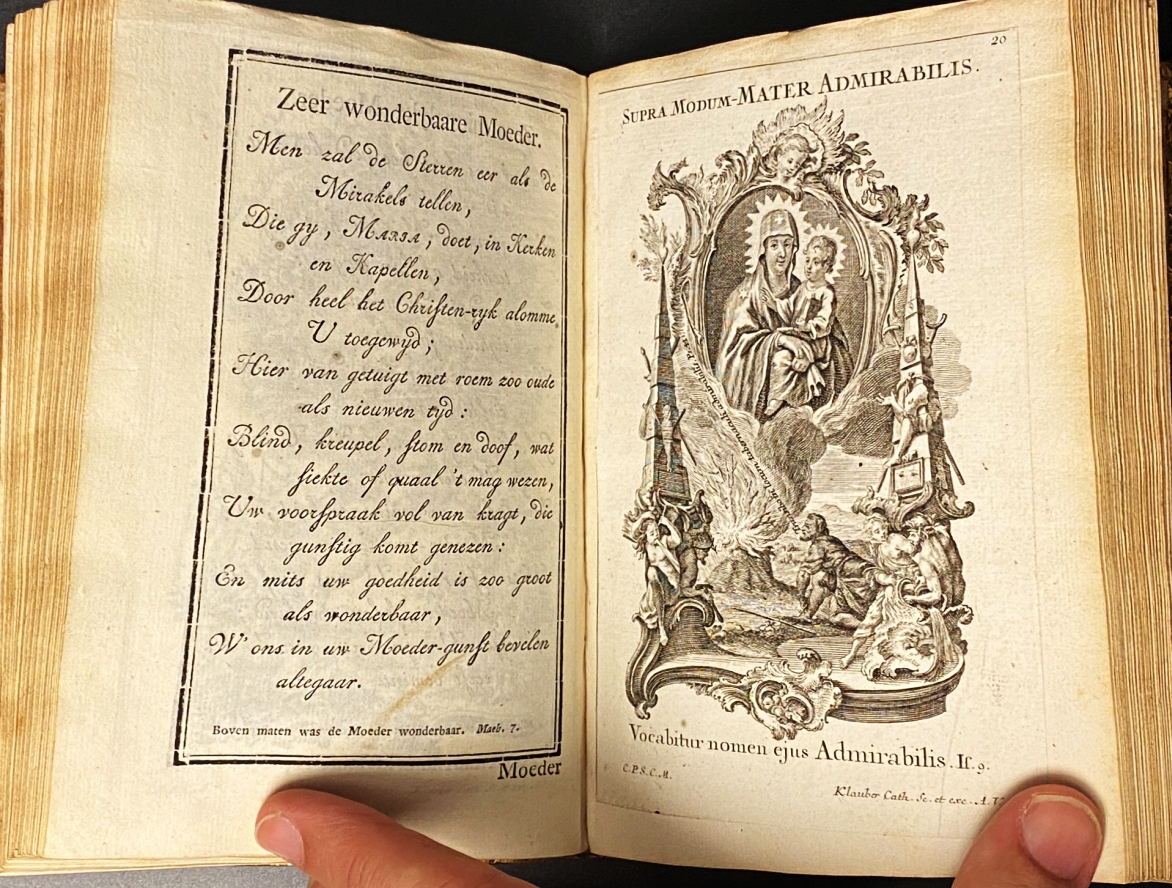 Zeer wonderbaare Moeder.
Men zal de Sterren eer als de
Mirakels tellen,
Die gy, MARIA, doet, in Kerken
en Kapellen,
Door heel het Chriſten-ryk alomme
U toegewyd;
Hier van getuigt met roem zoo oude
als nieuwen tyd:
Blind, kreupel, ſtom en doof, wat
ſiekte of quaal 't mag wezen,
Uw voorſpraak vol van kragt, die
gunſtig komt genezen:
En mits uw goedheid is zoo groot
als wonderbaar,
W' ons in uw Moeder-gunſt bevelen
altegaar.
Boven maten was de Moeder wonderbaar. Mach. 7.
Moeder
20
SUPRA MODUM-MATER ADMIRABILIS.
Vocabitur nomen ejus Admirabilis. Iſ. 9.
C.P.S.C.M.
Klauber Cath. Sc. et exc. A.V.